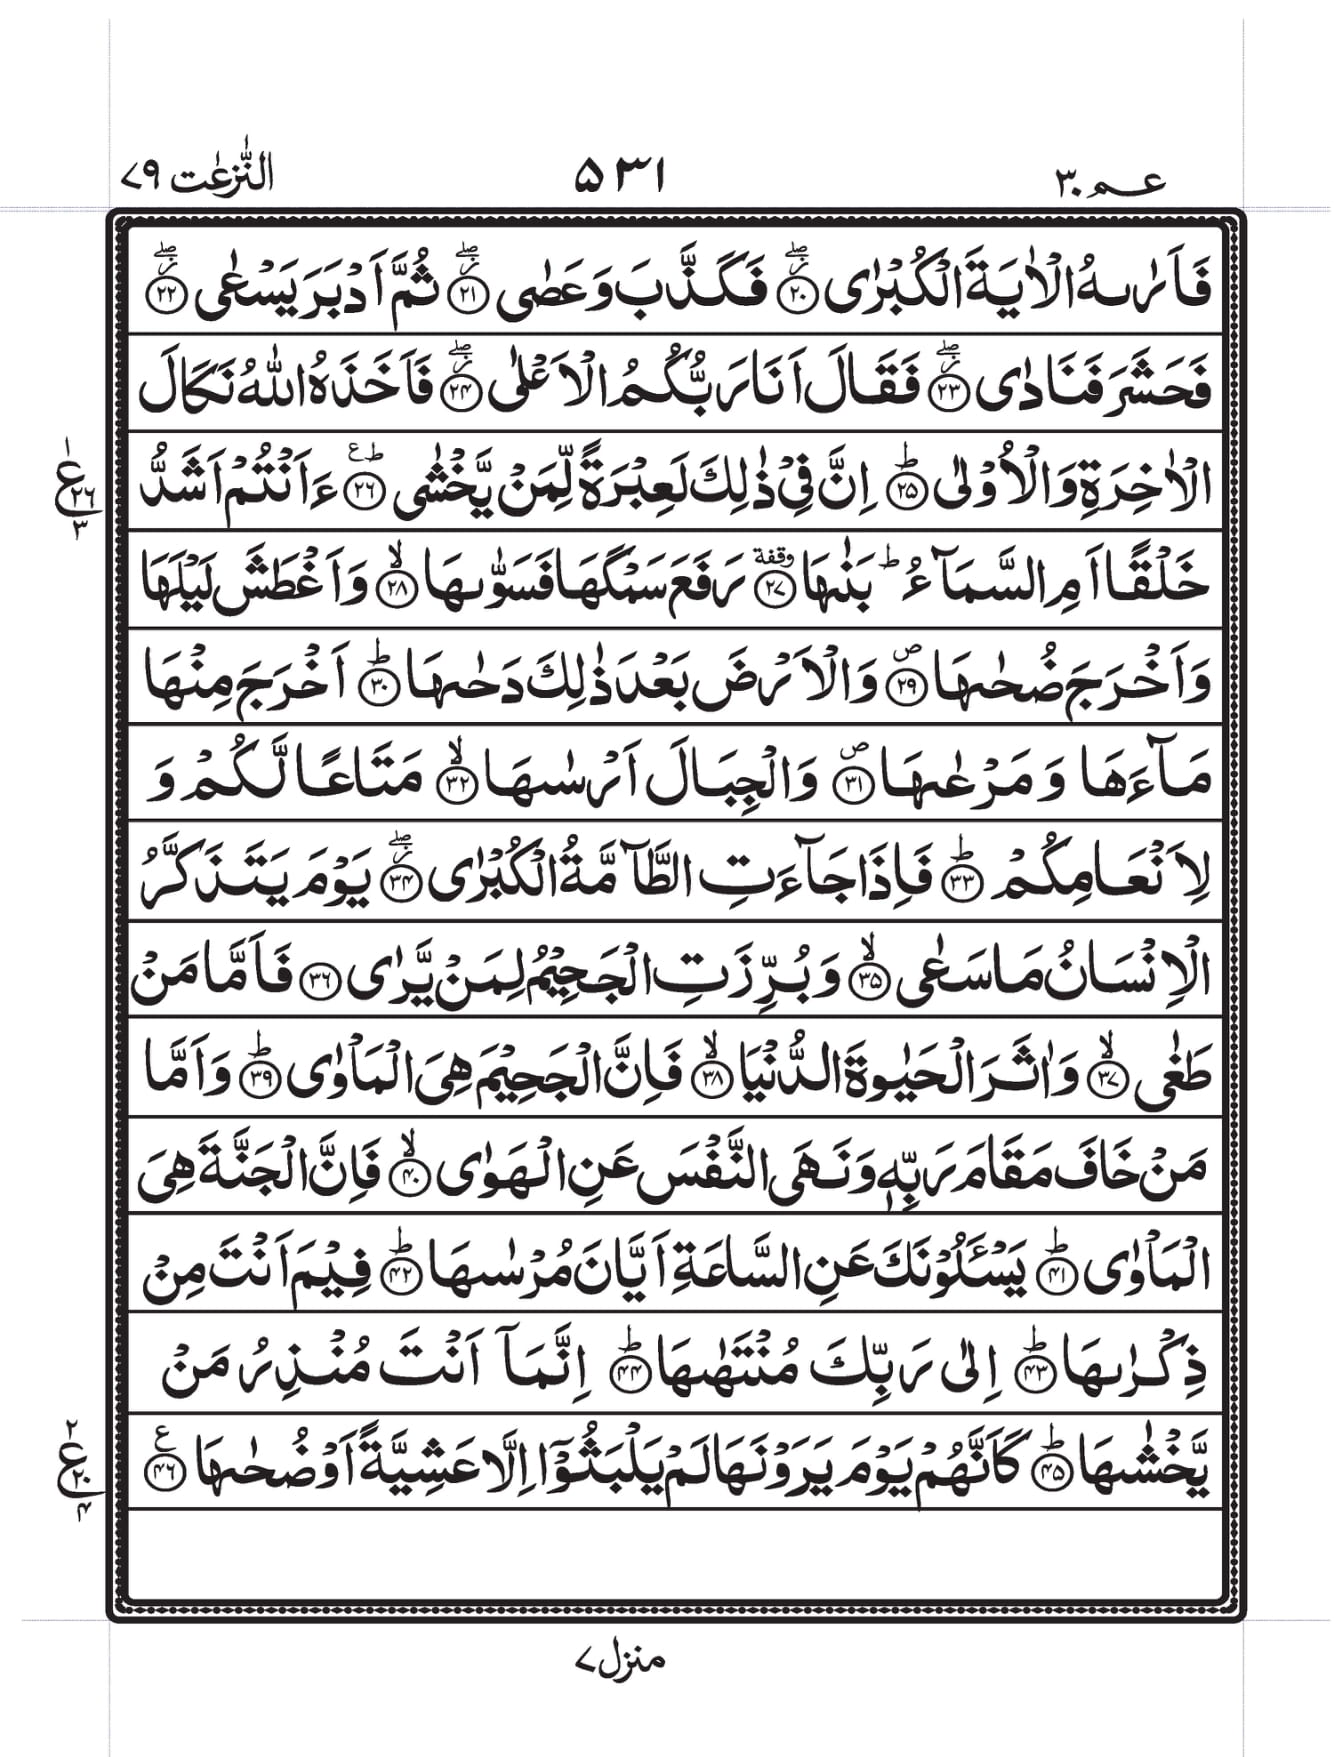 عـم ۳۰
۵۳۱
النّٰزعٰت ۷۹
فَاَرٰىهُ الْاٰيَةَ الْكُبْرٰى ۲۰ ۖز فَكَذَّبَ وَعَصٰى ۲۱ ۖز ثُمَّ اَدْبَرَ يَسْعٰى ۲۲ ۖز
فَحَشَرَ فَنَادٰى ۲۳ ۖز فَقَالَ اَنَا رَبُّكُمُ الْاَعْلٰى ۲۴ ۖز فَاَخَذَهُ اللّٰهُ نَكَالَ
الْاٰخِرَةِ وَالْاُوْلٰى ۲۵ ؕ اِنَّ فِيْ ذٰلِكَ لَعِبْرَةً لِّمَنْ يَّخْشٰى ۲۶ ؕ ع ءَاَنْتُمْ اَشَدُّ
ع ۱ ۲۶ ۳
خَلْقًا اَمِ السَّمَآءُ ؕ بَنٰىهَا ۲۷ وقفة رَفَعَ سَمْكَهَا فَسَوّٰىهَا ۲۸ ۙ وَاَغْطَشَ لَيْلَهَا
وَاَخْرَجَ ضُحٰىهَا ۲۹ ص وَالْاَرْضَ بَعْدَ ذٰلِكَ دَحٰىهَا ۳۰ ؕ اَخْرَجَ مِنْهَا
مَآءَهَا وَ مَرْعٰىهَا ۳۱ ص وَالْجِبَالَ اَرْسٰىهَا ۳۲ ۙ مَتَاعًا لَّكُمْ وَ
لِاَنْعَامِكُمْ ۳۳ ؕ فَاِذَا جَآءَتِ الطَّآمَّةُ الْكُبْرٰى ۳۴ ۖز يَوْمَ يَتَذَكَّرُ
الْاِنْسَانُ مَا سَعٰى ۳۵ ۙ وَبُرِّزَتِ الْجَحِيْمُ لِمَنْ يَّرٰى ۳۶ فَاَمَّا مَنْ
طَغٰى ۳۷ ۙ وَاٰثَرَ الْحَيٰوةَ الدُّنْيَا ۳۸ ۙ فَاِنَّ الْجَحِيْمَ هِيَ الْمَاْوٰى ۳۹ ؕ وَاَمَّا
مَنْ خَافَ مَقَامَ رَبِّهٖ وَنَهَى النَّفْسَ عَنِ الْهَوٰى ۴۰ ۙ فَاِنَّ الْجَنَّةَ هِيَ
الْمَاْوٰى ۴۱ ؕ يَسْـَٔلُوْنَكَ عَنِ السَّاعَةِ اَيَّانَ مُرْسٰىهَا ۴۲ ؕ فِيْمَ اَنْتَ مِنْ
ذِكْرٰىهَا ۴۳ ؕ اِلٰى رَبِّكَ مُنْتَهٰىهَا ۴۴ ؕ اِنَّمَآ اَنْتَ مُنْذِرُ مَنْ
يَّخْشٰىهَا ۴۵ ؕ كَاَنَّهُمْ يَوْمَ يَرَوْنَهَا لَمْ يَلْبَثُوْٓا اِلَّا عَشِيَّةً اَوْ ضُحٰىهَا ۴۶ ع
ع ۲ ۲۰ ۴
منزل ۷